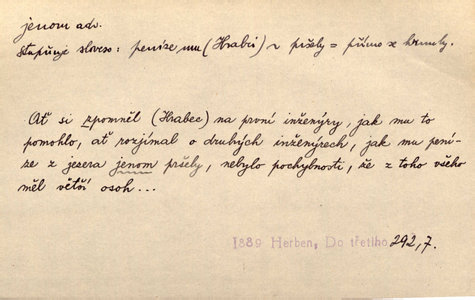 jenom adv.
stupňuje sloveso: peníze mu (Hrabci) ~ pršely = přímo se hrnuly.
Ať si zpomněl (Hrabec) na první inženýry, jak mu to
pomohlo, ať rozjímal o druhých inženýrech, jak mu pení-
ze z jezera jenom pršely, nebylo pochybnosti, že z toho všeho
měl větší osoh...
1889 Herben, Do třetího 292, 7.